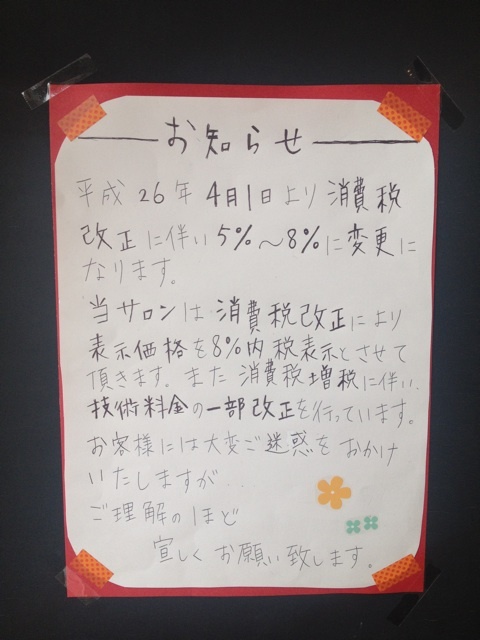 お知らせ
平成26年4月1日より消費税
改正に伴い5%〜8%に変更に
なります。
当サロンは消費税改正により
表示価格を8%内税表示とさせて
頂きます。また消費税増税に伴い、
技術料金の一部改正を行っています。
お客様には大変ご迷惑をおかけ
いたしますが...
ご理解のほど
宜しくお願い致します。